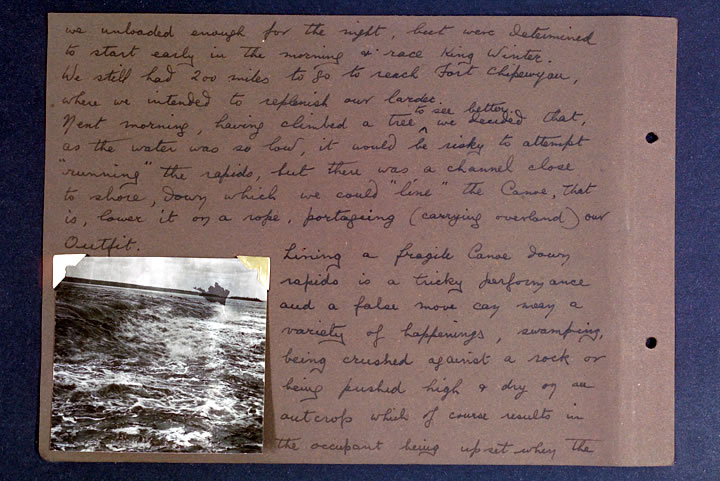 we unloaded enough for the night, but were determined
to start early in the morning & race King Winter.
We still had 200 miles to go to reach Fort Chipewyan,
where we intended to replenish our larder.
to see better
Next morning, having climbed a tree ^ we decided that,
as the water was so low, it would be risky to attempt
"running" the rapids, but there was a channel close
to shore, down which we could "line" the Canoe, that
is, lower it on a rope, portageing (carrying overland) our
Outfit.
Lining a fragile Canoe down
rapids is a tricky performance
and a false move can mean a
variety of happenings, swamping,
being crushed against a rock or
being pushed high & dry on an
outcrop which of course results in
the occupant being upset when the